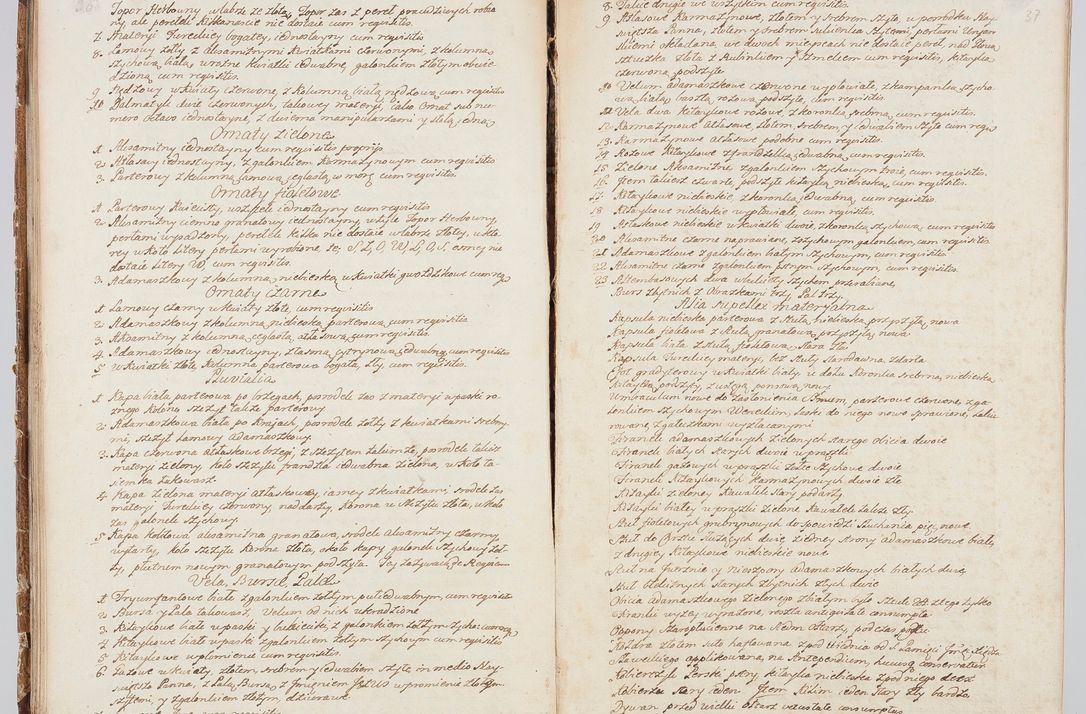 Topor Herbowny w łabrze ze złota, Topor zas z pereł prawdziwych robio
ny ale perełek kilkanascie nie dostaie cum requisitis.
7. Materyi Tureckiey bogatey, iednostayny cum requisitis
8. Lamowy żołty z aksamitnymi kwiatkami czerwonymi, z kolumną
szychową białą, w rożne kwiatki iedwabne, galonkiem złotym obwie
dziona, cum requisitis.
9. Rządzowy w kwiaty czerwone, z kolumną białą rządzową cum requisitis
10. Dalmatyk dwie czerwonych, takowey materyi, iako Ornat sub nu
mero octavo iednostayne, z dwiema manipularzami y stułą iedną
Ornaty zielone
1. Aksamitny iednostayny cum requisitis proprijs
2. Atłasowy iednostayny, z galonkiem karmazynowym cum requisitis
3. Parterowy z kolumną lamową ceglastą w morę cum requisitis.
Ornaty fioletowe
1. Parterowy kwiecisty, wszystek iednostayny cum requisitis
2. Aksamitny ciemno granatowy iednostayny w tyle Topor Herbowny,
perłami wysadzony, perełek kilka nie dostaie w łabrze złoty, w kto
rey w koło litery perłami wyrobione, te, S. Z. O. W. L. O. S. a w niey nie
dostaie litery W, cum requisitis.
3. Adamaszkowy z kolumną niebieską w kwiatki gwozdzikowe cum req.
Ornaty czarne
1. Lamowy czarny w kwiaty złote, cum requisitis
2. Adamaszkowy z kolumną niebieską parterową cum requisitis
3. Aksamitny z kolumną ceglastą atłasową cum requisitis
4. Adamaszkowy iednostayny, z tasmą cytrynową iedwabną cum requisitis
5. w kwiatki złote kolumna parterowa bogata, zły, cum requisitis.
Pluvialia
1. Kapa biała parterowa po brzegach, posrodek zas z materyi w paski ro
znego koloru szczyt także parterowy
2. Adamaszkowa biała po krajach, posrodek żołty z kwiatkami srebrny
mi, szczyt lamowy adamaszkowy.
3. Kapa czerwona atłaskowe brzegi, z szczytem takimże, posrodek takisz
materyi zielony, koło szczytu frandzla iedwabna zielona, w koło ta
siemka takowasz.
4. Kapa zielona materyi atłaskowey, iasney z kwiatkami, srodek zas
materyi Tureckiey czerwony, naddarty, korona w szczytu złota, w koło
zas galonek szychowy
5. Kapa kotkowa aksamitna granatowa, srodek aksamitny czarny,
wytarty, koło szczytu korona złota, około kapy galonek szychowy żoł
ty, płutnem nowym granatowym podszyta. Tey zażywaią de Requiem
Vela, Bursæ, Pallæ
1. Tryumfantowe białe z galonkiem żołtym put iedwabnym, cum requisitis
2. Bursa y Palla takowasz, Velum od nich ukradzione
3. Kitaykowe białe w paski y bukieciki, z galonkiem żołtym szychowym
4. Kitaykowe białe w paski z galonkiem żołtym szychowym cum requisitis
5. Kitaykowe w płomienie cum requisitis.
6. Gazowe w kwiaty, złotem, srebrem y iedwabiem szyte in medio Nay
swiętsza Panna, z Pallą, Bursa, z Imieniem JESUS w promienie złotym
szytemi, y z galonkiem złotym dziurawe
37
8. Takie drugie we wszystkim cum requisitis.
9. Atłasowe karmazynowe, złotem y srebrem szyte, w posrodku Nay
swiętsza Panna, złotem y srebrem sukienka szytemi, perłami Uryan
skiemi okładana, we dwoch mieyscach nie dostaie pereł, nad Głową
sztuczka złota z Rubinkiem y szmelcem cum requisitis, kitayką
czerwoną podszyte
10. Velum adamaszkowe czerwone wypłowiałe, z kampanką szycho
wą białą, baszta rożową podszyte, cum requisitis.
11. Vela dwa kitaykowe rożowe, z koronką srebrną, cum requisitis.
12. Karmazynowe atłasowe, złotem, srebrem, y iedwabiem szyte cum req.
13. Karmazynowe Atłasowe podobne cum requisitis.
14. Rożowe kitaykowe z frandzelką iedwabną, cum requisitis
15. Zielone Aksamitne z galonkiem szychowym troie, cum requisitis.
16. Item takiesz czwarte podszyte kitayką niebieską, cum requisitis.
17. Kitaykowe niebieskie, z koronką iedwabną, cum requisitis.
18. Kitaykowe niebieskie wypłowiałe, cum requisitis.
19. Atłaskowe niebieskie w kwiatki dwoie, z koronką szychową, cum requisitis
20. Aksamitne czarne naprawiane, z szychowym galonkiem, cum requisitis
21. Adamaszkowe z galonkiem białym szychowym, cum requisitis.
22. Aksamitne czarne z galonkiem złotym szychowym, cum requisitis.
23. Altembasowych dwa w kwiaty szychem przerabiane,
Burs zbytnich z Obrazkami trzy, Pal trzy,
Alia supellex materialna
Kapsuła niebieska parterowa z stułą niebieską przyszytą, nowa
Kapsuła fioletowa z stułą, granatową przyszytą, nowa
Kapsuła biała z stułą fioletową, stara zła
Kapsuła Tureckiey materyi, bez stuły starodawna zdarta
Fiok gradyterowy w kwiatki biały w dołu koronka srebrna, niebieską
kitayką podszyty, z wstęgą ponsową nowy.
Umbraculum nowe do zasłonienia Smum, parterowe czerwone, z ga
lonkiem szychowym Weneckim, laski do niego nowo sprawione, lakie
rowane, z gałeczkami wyzłacanymi
Firanek adamaszkowych zielonych starego obicia dwoie
Firanek białych starych dwoie w prązki
Firanek gazowych w prązki żołte szychowe dwoie
Firanek kitaykowych karmazynowych dwoie złe
Kitayki zieloney kawałek stary podarty
Kitayki białey w prązki zielone kawałek także zły
Stuł fioletowych grubrynowych do spowiedzi słuchania pięć, nowe
Stuł do Chrztu służących dwie z iedney strony adamaszkowe białe,
z drugiey kitaykowe niebieskie nowe
Stuł na Jutrznie y nieszpory adamaszkowych białych dwie,
Stuł obdłużnych starych zbytnich złych dwie
Obicia adamaszkowego zielonego z białym było sztuk 22. z tego tylko
Firanki wyzey wyrażone, reszta antiquitate consumpta
Oppony staropłucienne na siedm ołtarzy, podczas postu
Kołdra złotem suto haftowana z pod Widnia od S. Pamięci Jmć Xiędza
Staweckiego applikowana, na Antependium, hucusque conservatur
Kobierczyk Perski, przy kitayka niebieska z pod niego dest
Kobierzec stary ieden. Item Kilim ieden stary zły bardzo
Dywan przed wielki ołtarz vetustate consumptus